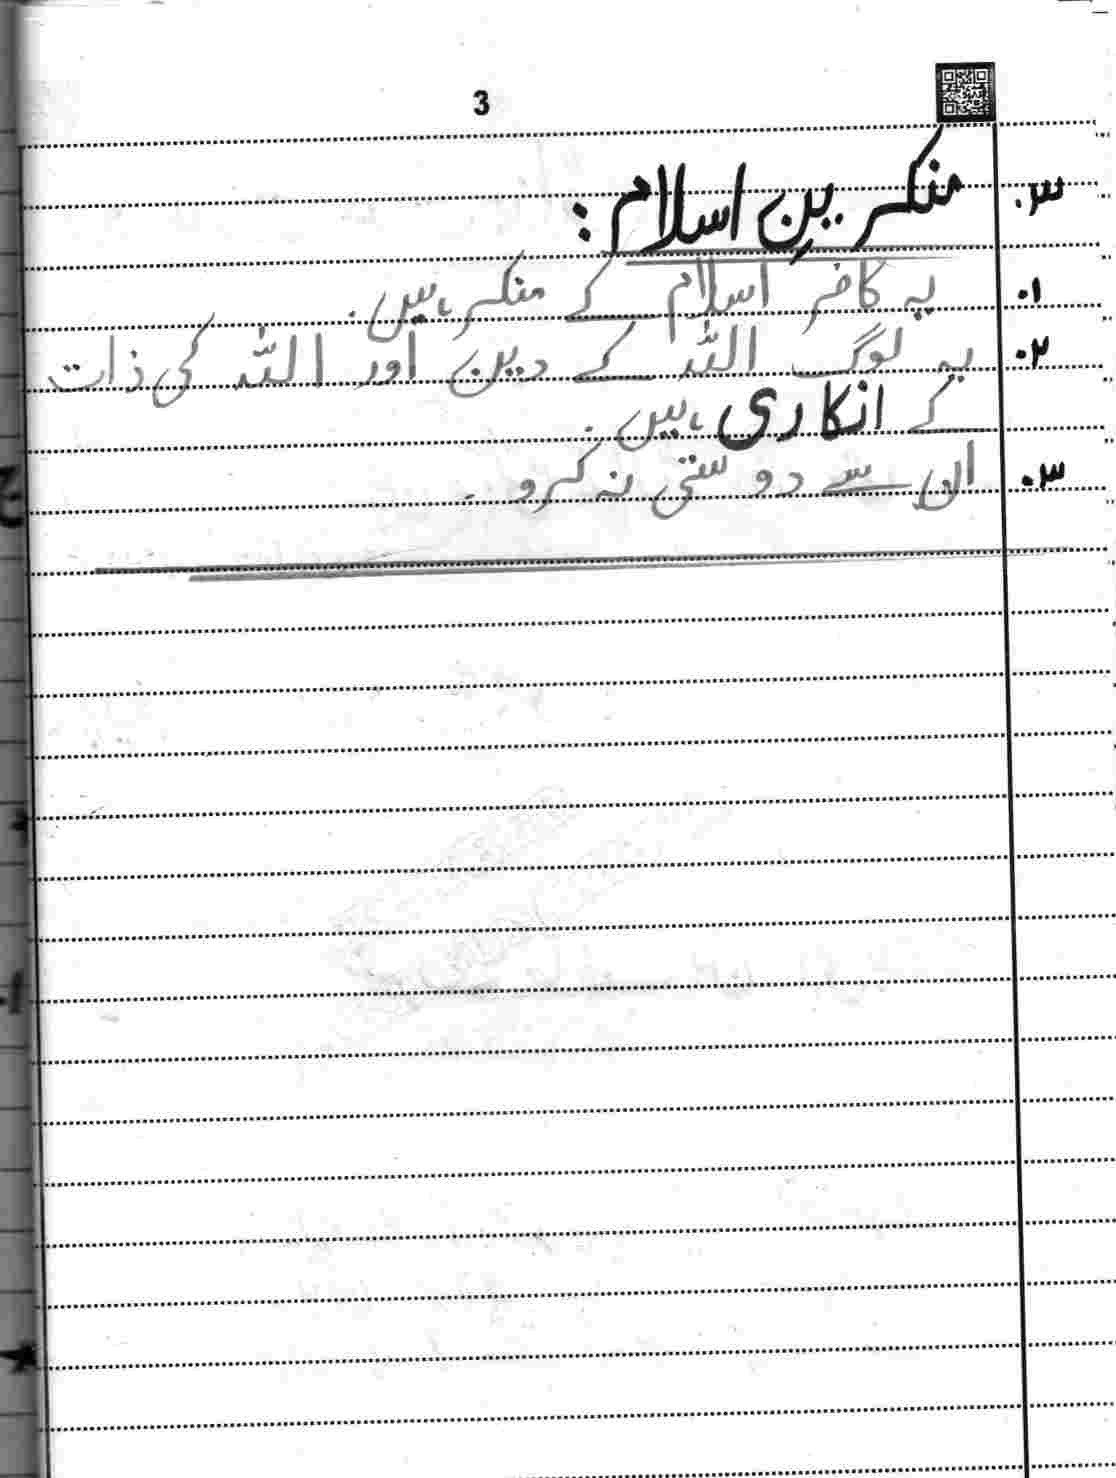 3
۳. منکرین اسلام :
۱. یہ کافر اسلام کے منکر ہیں.
۲. یہ لوگ اللہ کے دین اور اللہ کی ذات
کے انکاری ہیں.
۳. ان سے دوستی نہ کرو.